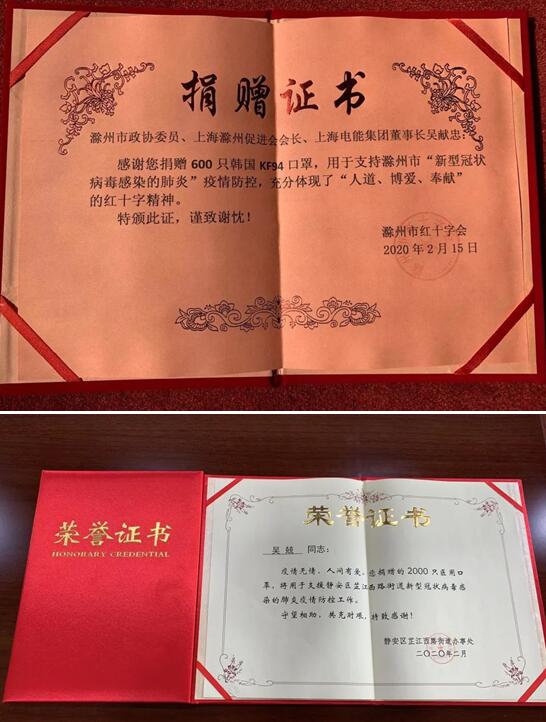 捐赠证书
滁州市政协委员、上海滁州促进会会长、上海电能集团董事长吴献忠：
感谢您捐赠 600 只韩国 KF94 口罩，用于支持滁州市“新型冠状
病毒感染的肺炎”疫情防控，充分体现了“人道、博爱、奉献”
的红十字精神。
特颁此证，谨致谢忱！
滁州市红十字会
2020 年 2 月 15 日
荣誉证书
HONORARY CREDENTIAL
荣誉证书
吴兢 同志：
疫情无情，人间有爱。您捐赠的2000只医用口
罩，将用于支援静安区芷江西路街道新型冠状病毒感
染的肺炎疫情防控工作。
守望相助，共克时艰，特致感谢！
静安区芷江西路街道办事处
二〇二〇年二月